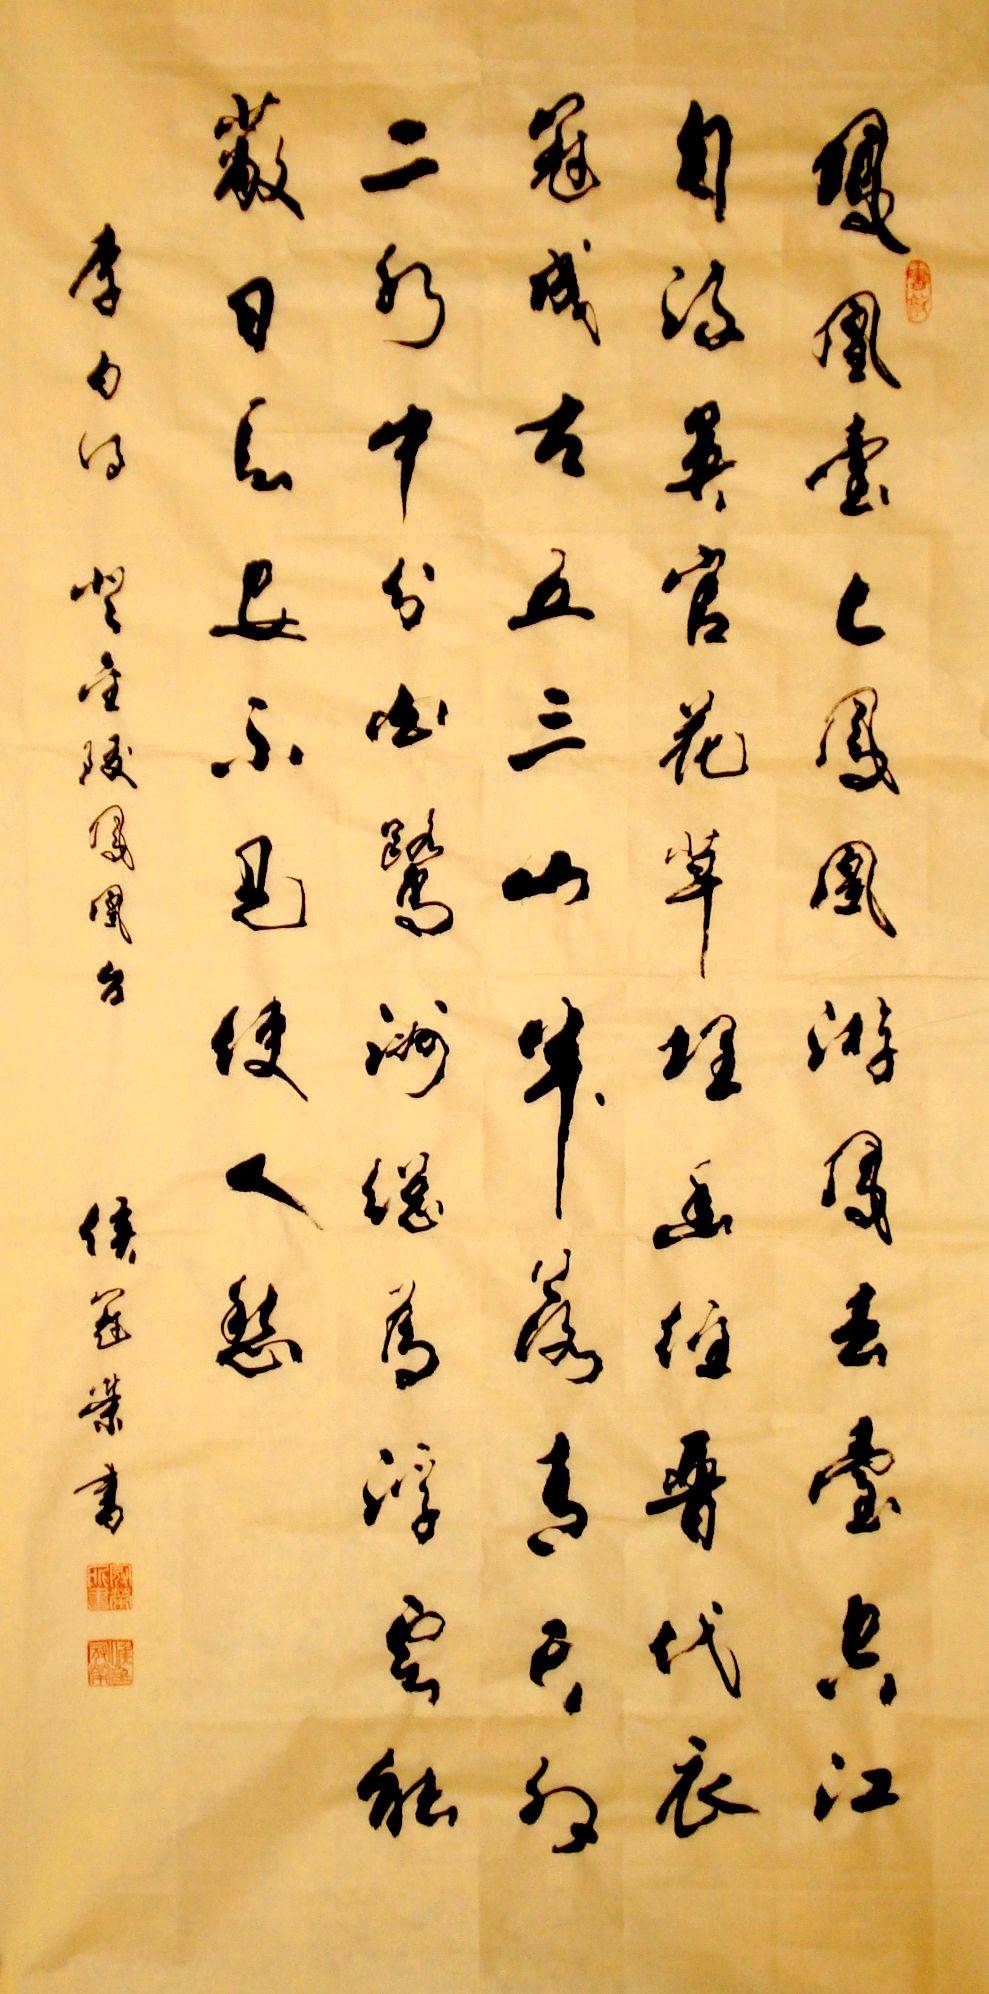 鳳凰臺上鳳凰游鳳去臺空江
自流吳宮花草埋幽徑晉代衣
冠成古丘三山半落青天外
二水中分白鷺洲總為浮雲能
蔽日長安不見使人愁
李白詩 登金陵鳳凰台 侯冠榮書